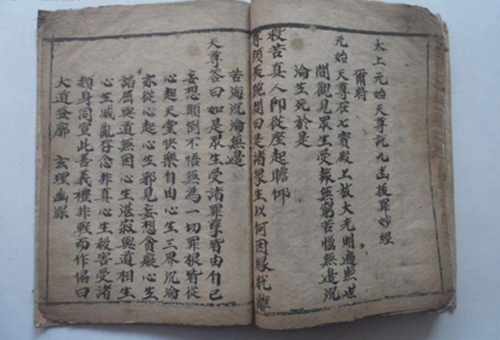 太上元始天尊說九幽拔罪妙經
爾時
元始天尊在七寶殿上放大光明遍照世
間觀見眾生受報無窮苦惱無邊沉
淪生死於是
救苦真人即從座起瞻仰
尊顏長跪問曰是諸眾生以何因緣
苦海沉淪無邊
天尊答曰如是眾生受諸罪孽皆由自己
妄想顛倒不悟無為一切罪根皆從
心起天堂快樂自由心生三界沉淪
亦從心起心生邪見妄想貪癡心生
諂屈與道無因心生湛寂與道相生
心生滅亂存念非真心生殺害受諸
類身同宣此善義機非戰而作偈曰
大道發廓 玄理幽深